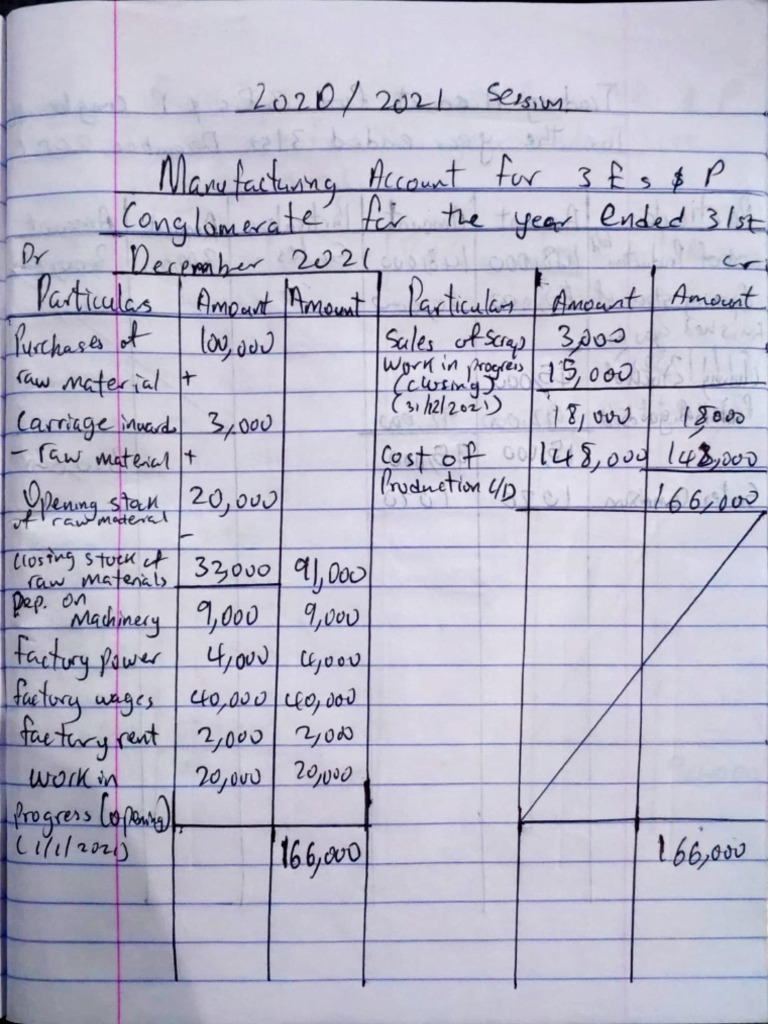 2020/2021 Session
Manufacturing Account for 3 E s $ P
Conglomerate for the year ended 31st
Dr December 2021 cr
Particulas Amount Amount Particulars Amount Amount
Purchases of 100,000 Sales of Scrap 3,000
raw material + Work in progress 15,000
(closing)
(31/12/2021)
Carriage inwards 3,000 18,000 18,000
- raw material + Cost of 148,000 148,000
Opening stock 20,000 Production C/D 166,000
of raw material
-
Closing stock of 33,000 91,000
raw materials
Dep. on
Machinery 9,000 9,000
factory power 4,000 4,000
factory wages 40,000 40,000
factory rent 2,000 2,000
work in 20,000 20,000
Progress (opening)
(1/1/2021) 166,000 166,000